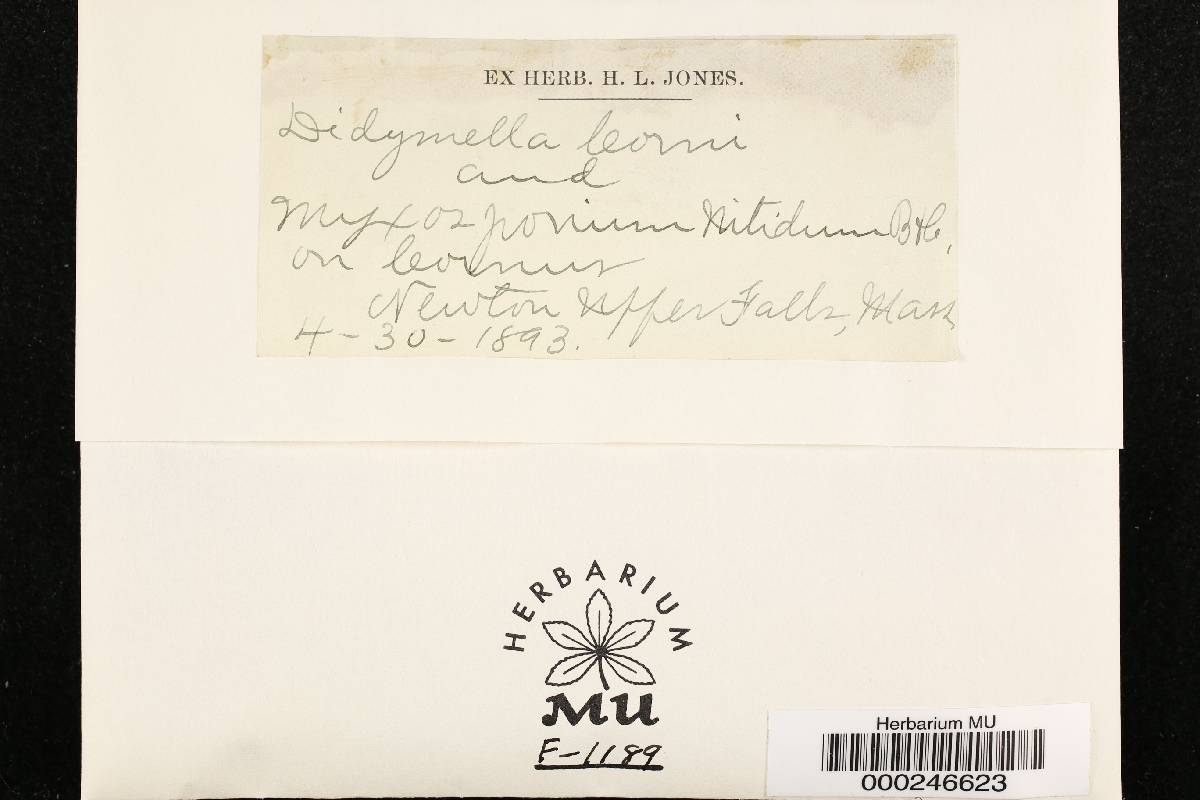 EX HERB. H. L. JONES.
Didymella Corni
and
Myxosporium Nitidum B&C,
on Cornus
Newton Upper Falls, Mass
4-30-1893.
HERBARIUM
MU
F-1189
Herbarium MU
000246623